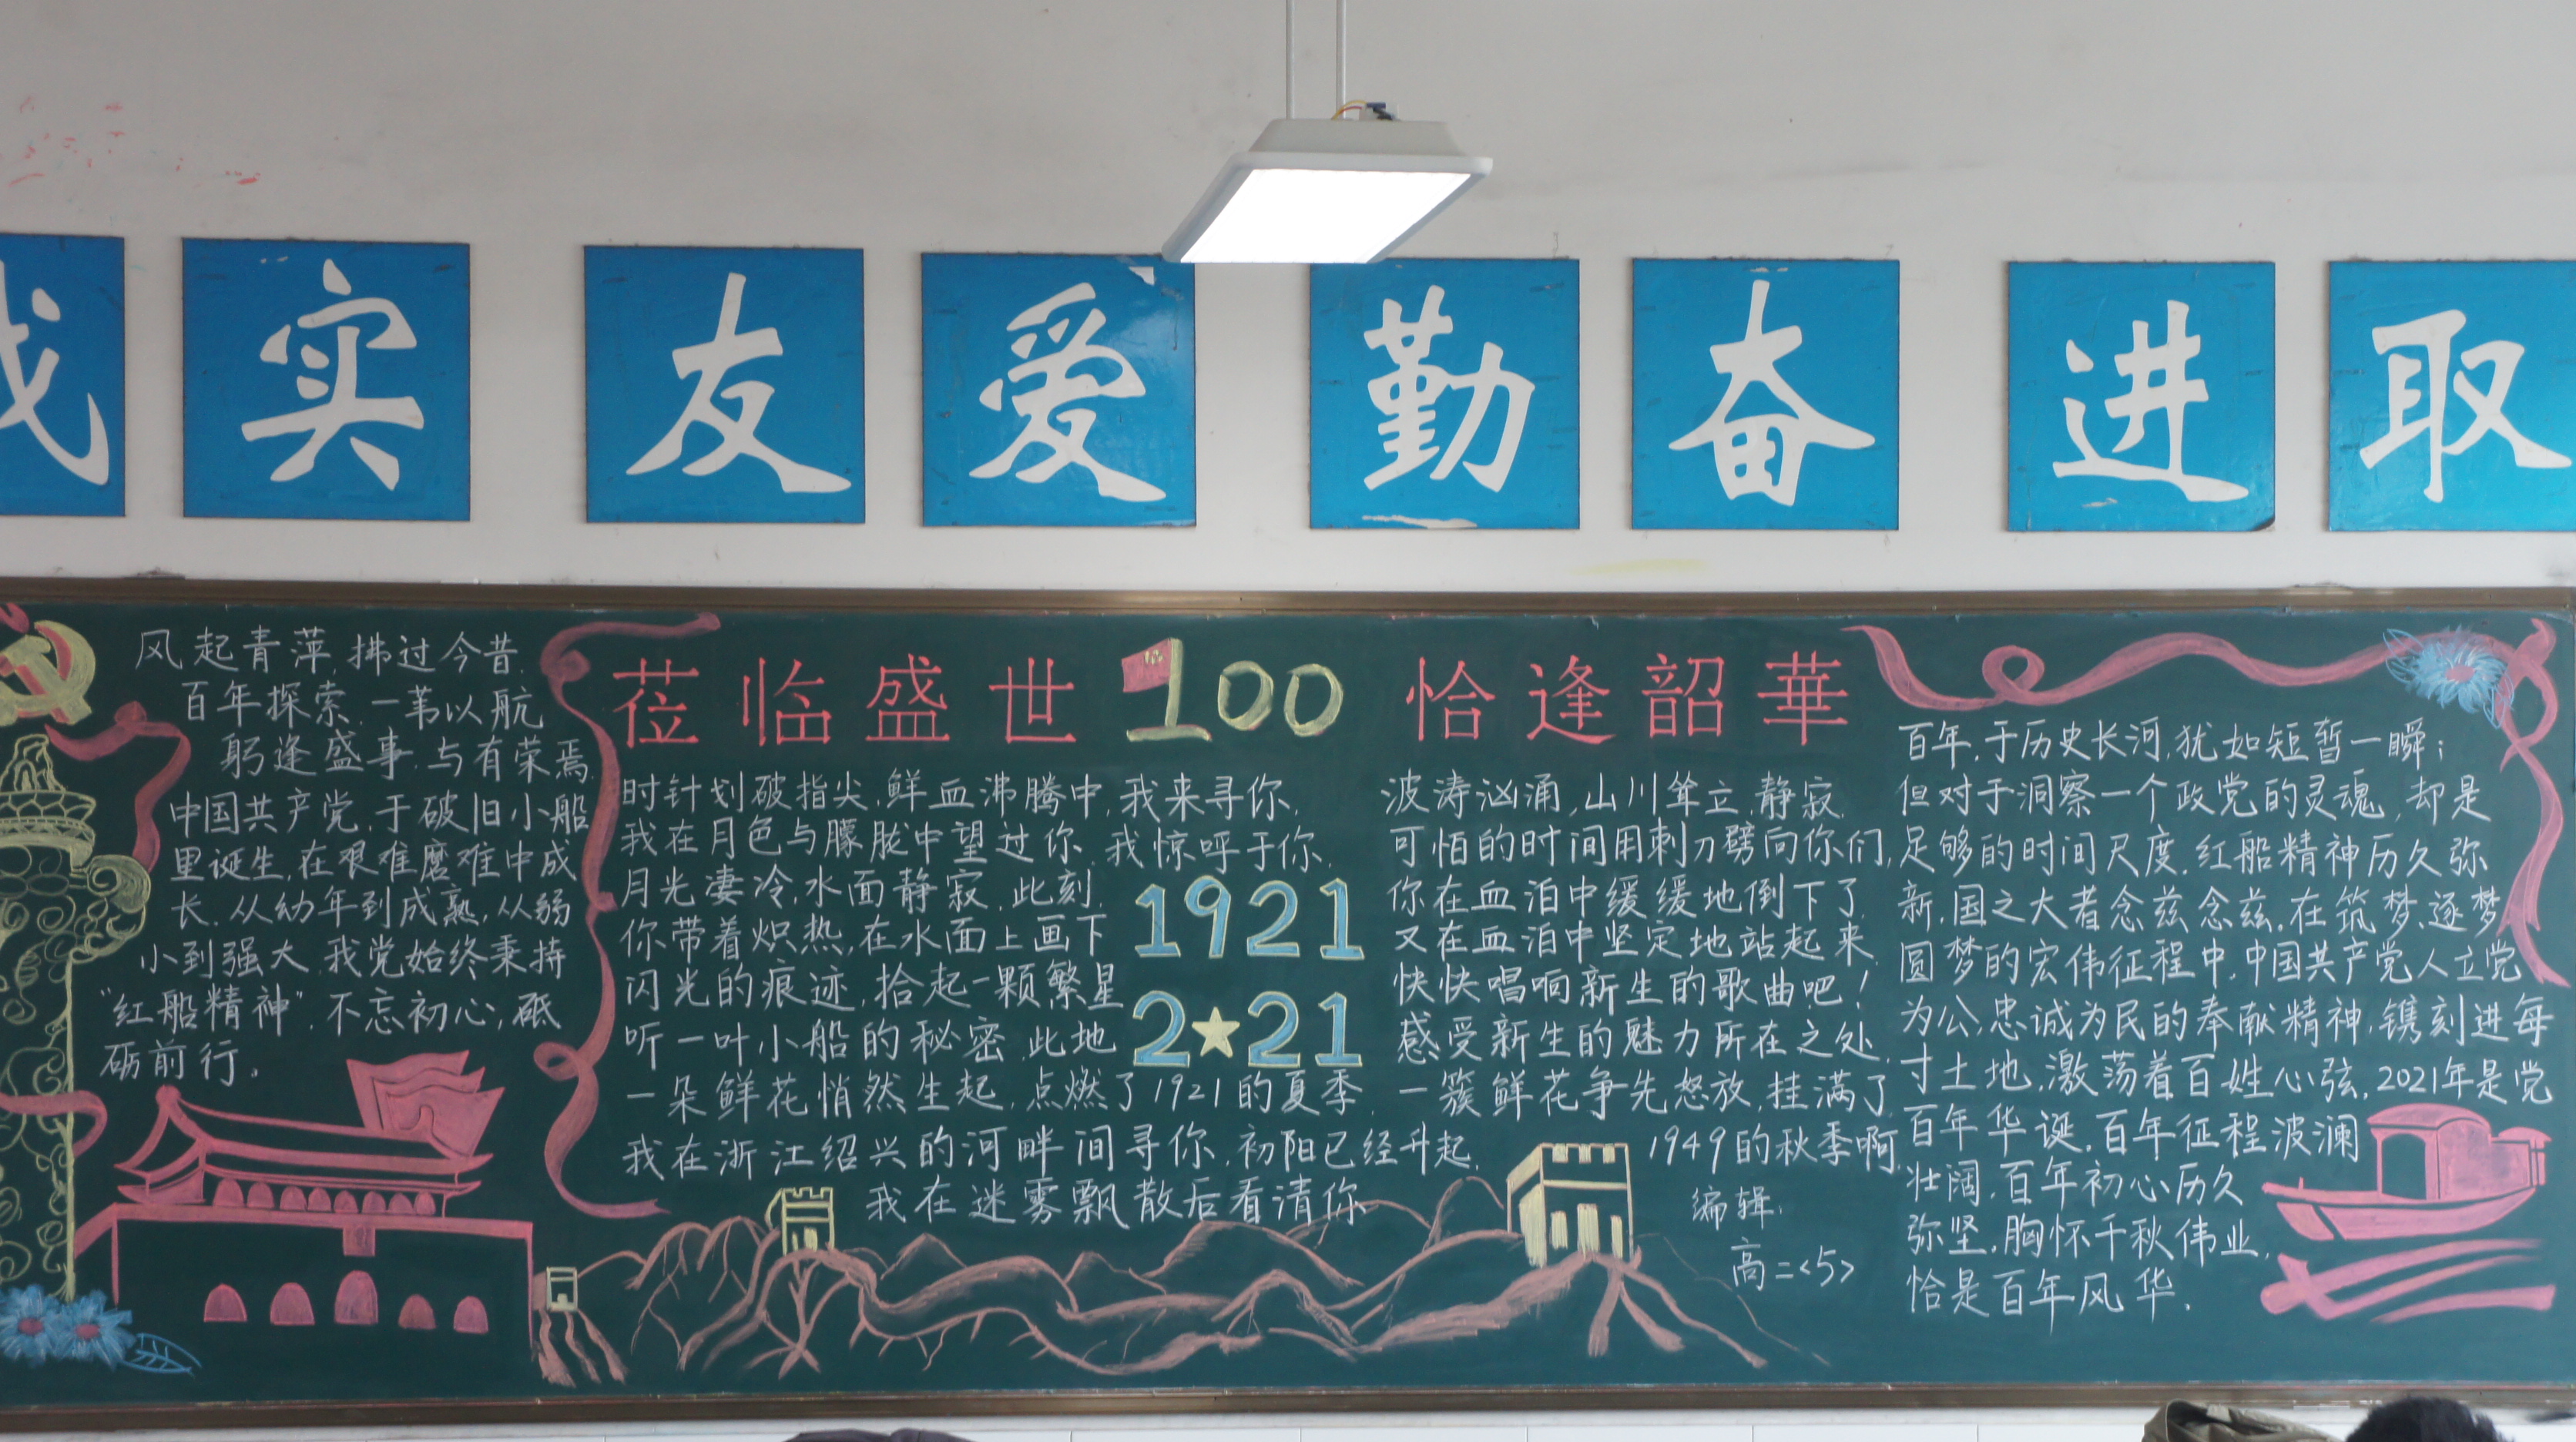 实 友 爱 勤 奋 进 取
风起青萍,拂过今昔.
百年探索.一苇以航
躬逢盛事.与有荣焉.
中国共产党,于破旧小船
里诞生,在艰难磨难中成
长.从幼年到成熟,从弱
小到强大.我党始终秉持
“红船精神”.不忘初心,砥
砺前行。
莅临盛世100 恰逢韶華
时针划破指尖,鲜血沸腾中,我来寻你,
我在月色与朦胧中望过你,我惊呼于你,
月光凄冷,水面静寂,此刻,
你带着炽热,在水面上画下
闪光的痕迹,拾起一颗繁星
听一叶小船的秘密,此地
一朵鲜花悄然生起,点燃了1921的夏季,
我在浙江绍兴的河畔间寻你,初阳已经升起,
我在迷雾飘散后看清你
1921
2★21
波涛汹涌,山川耸立,静寂,
可怕的时间用刺刀劈向你们,
你在血泊中缓缓地倒下了,
又在血泊中坚定地站起来,
快快唱响新生的歌曲吧!
感受新生的魅力所在之处,
一簇鲜花争先怒放,挂满了
1949的秋季啊,
编辑:
高二<5>
百年,于历史长河,犹如短暂一瞬;
但对于洞察一个政党的灵魂,却是
足够的时间尺度.红船精神历久弥
新,国之大者念兹念兹,在筑梦、逐梦、
圆梦的宏伟征程中,中国共产党人立党
为公,忠诚为民的奉献精神,镌刻进每
寸土地,激荡着百姓心弦,2021年是党
百年华诞,百年征程波澜
壮阔,百年初心历久
弥坚,胸怀千秋伟业,
恰是百年风华.